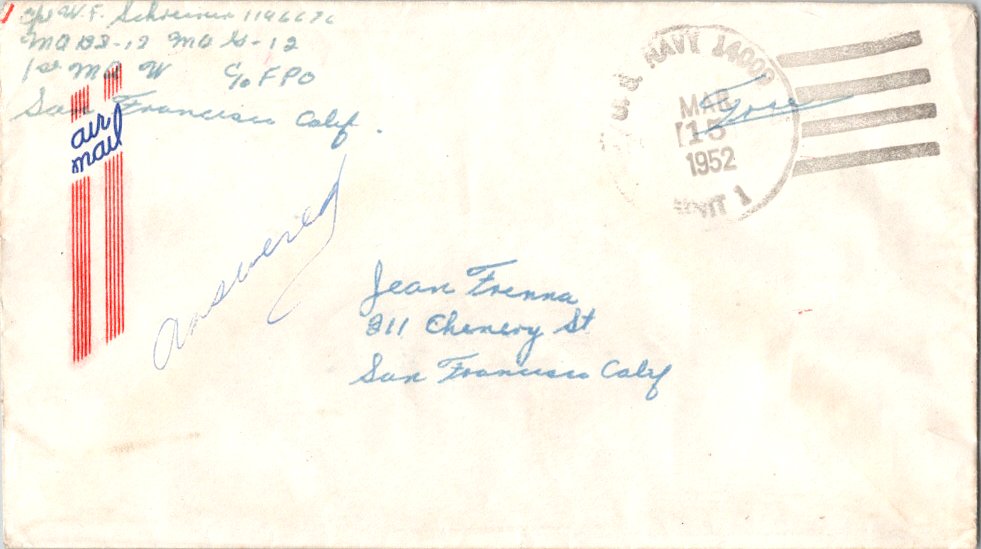 Cpl W.F. Schreiner 1196676
1st MAW C/o FPO
San Francisco Calif.
air
mail
U.S. NAVY 14009
MAR
15
1952
UNIT 1
Free
Answered
Jean Frenna
811 Chenery St
San Francisco Calif